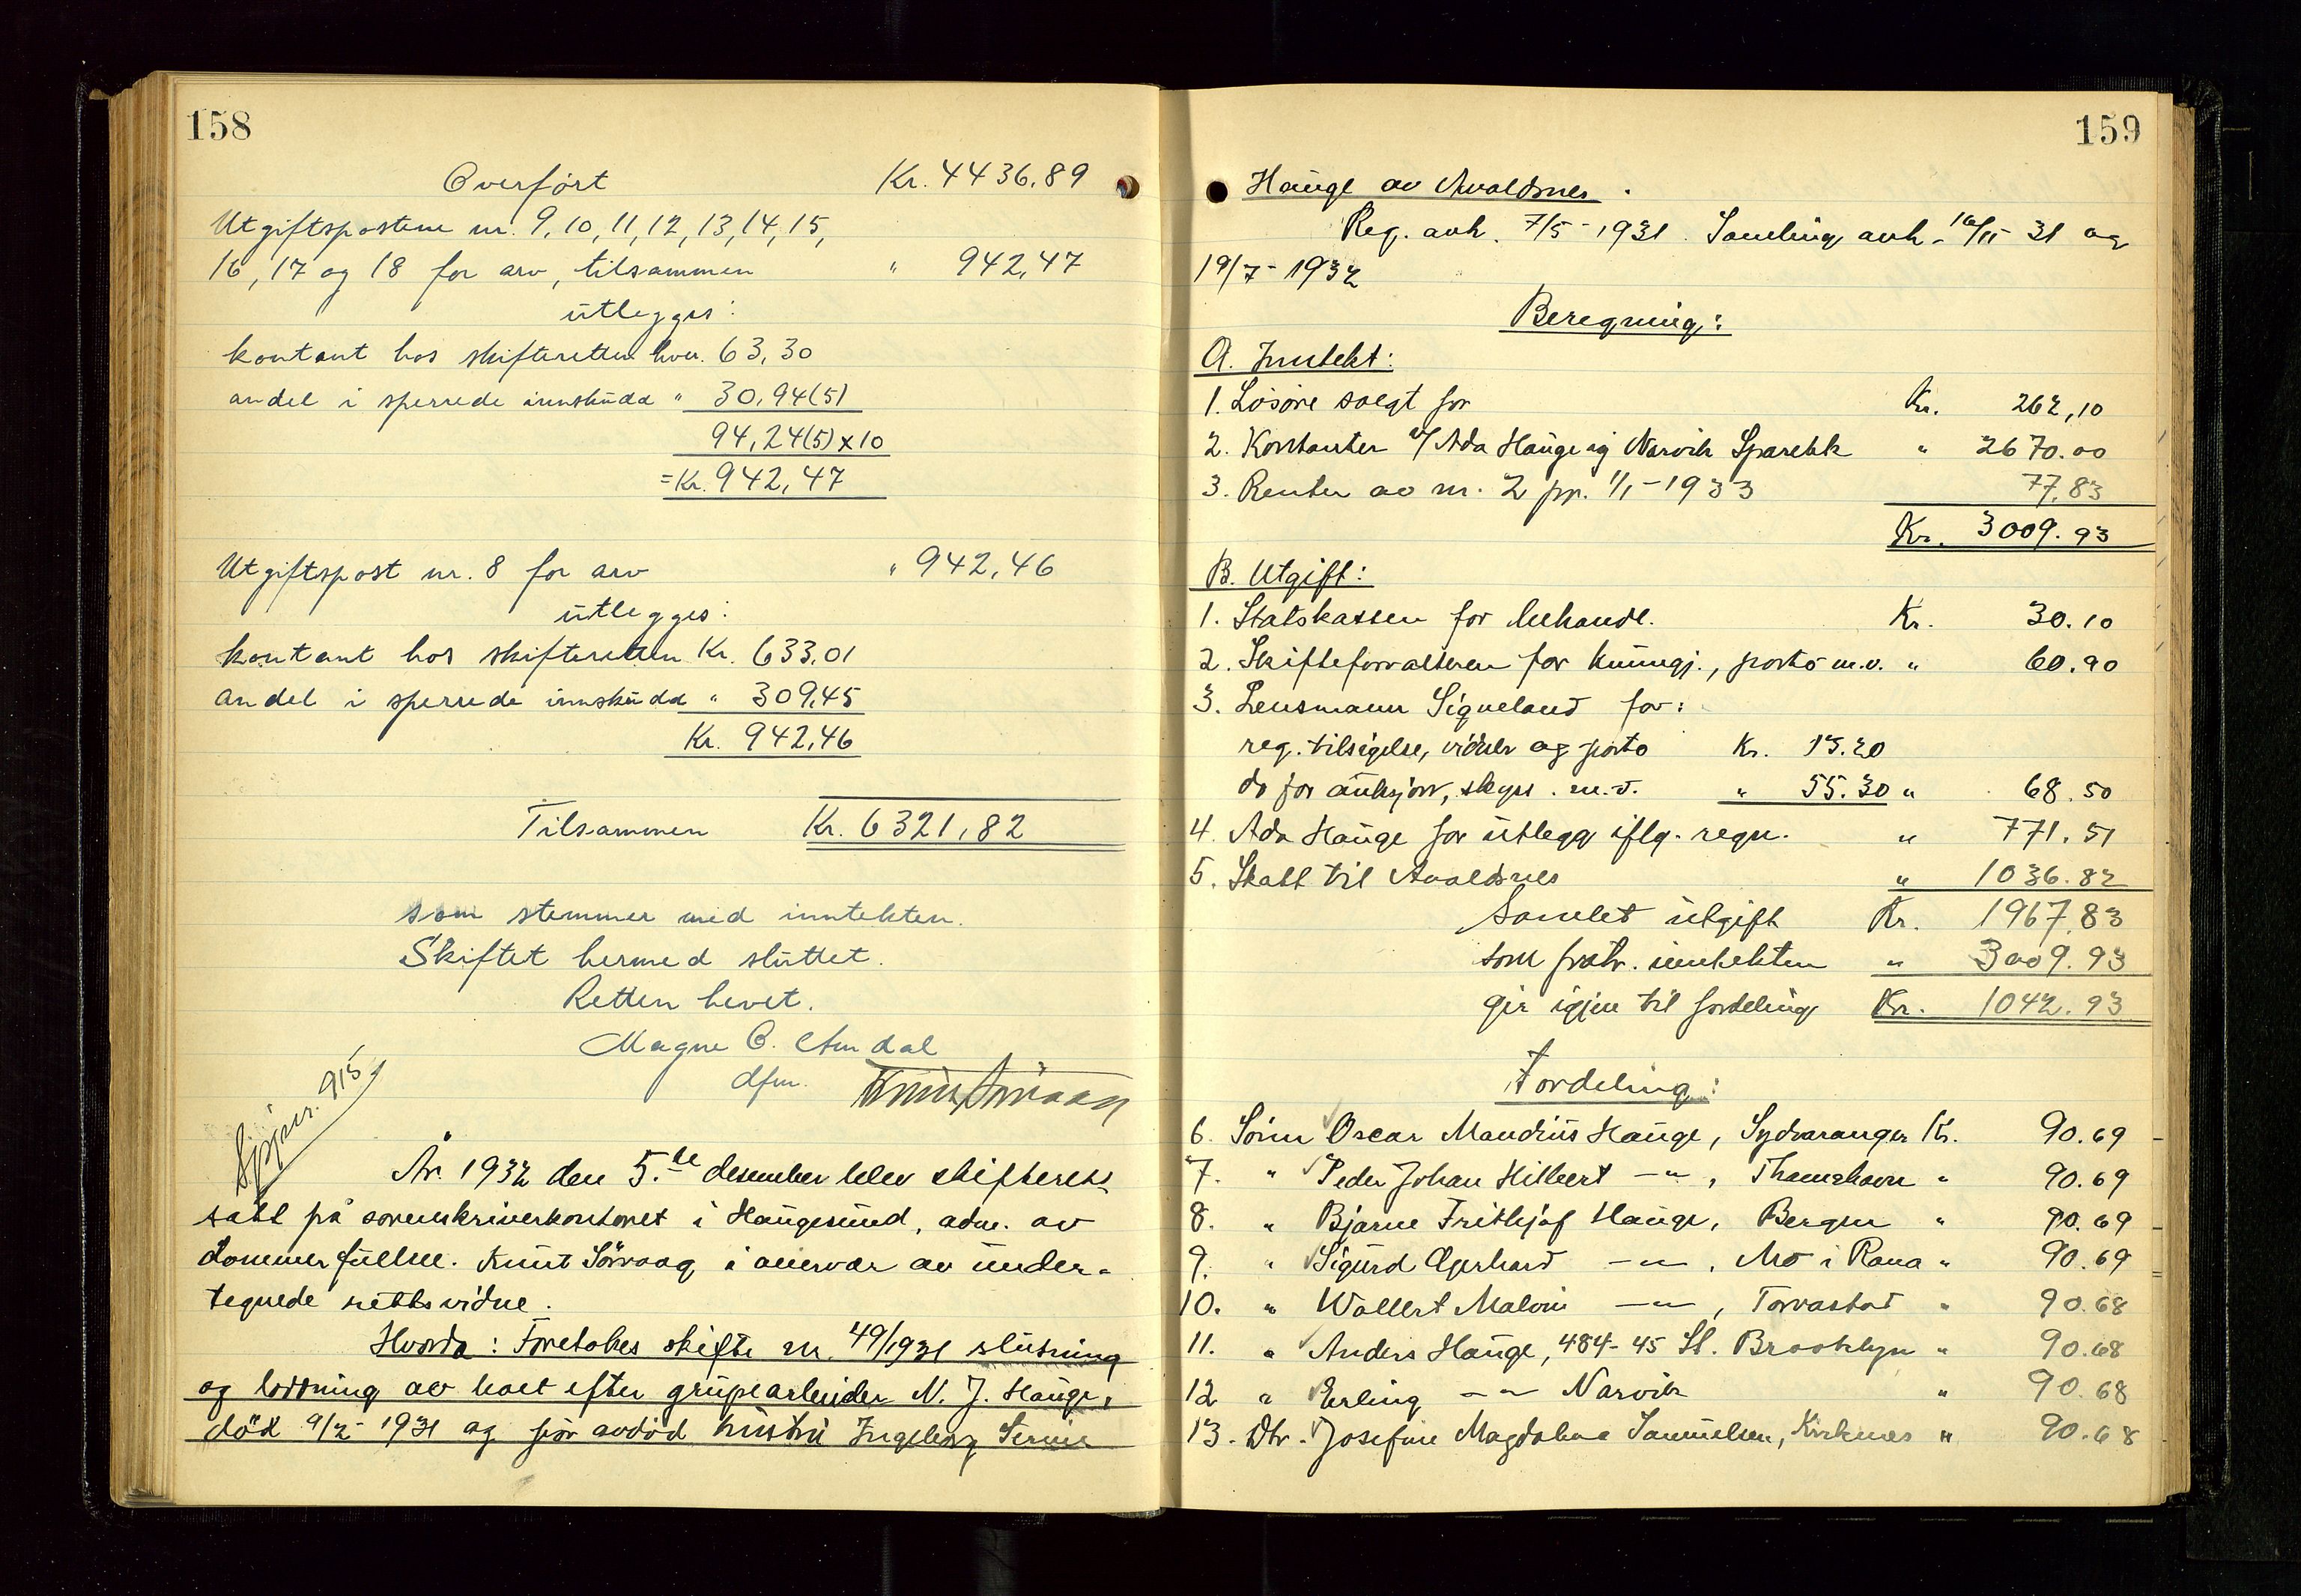 158
Overført Kr. 4436,89
Utgiftspostene nr. 9, 10, 11, 12, 13, 14, 15,
16, 17 og 18 for arv, tilsammen " 942,47
utlegges:
kontant hos skifteretten hver. 63,30
andel i sperrede innskudd " 30,94(5)
94,24(5) x 10
= Kr. 942,47
Utgiftspost nr. 8 for arv " 942,46
utlegges:
kontant hos skifteretten Kr. 633,01
andel i sperrede innskudd " 309,45
Kr. 942,46
Tilsammen Kr. 6321,82
som stemmer med inntekten.
Skiftet hermed sluttet.
Retten hevet.
Magne O. Amdal
dfm. Knut Sørvaag
915
År 1932 den 5.te desember blev skifterett
satt på sorenskriverkontoret i Haugesund, adm. av
dommerfullm. Knut Sörvaag i nærvær av under-
tegnede rettsvidne.
Hvorda: Foretokes skifte nr. 49/1931 slutning
og loddning av boet efter grupearbeider N. J. Hauge,
död 9/2- 1931 og før avdöd hustru Ingeborg Serine
159
Hauge av Avaldsnes.
Reg. avh. 7/5- 1931. Samling avh. 16/11- 31 og
19/7- 1932
Beregning:
A. Inntekt:
1. Lösöre solgt for Kr. 262,10
2. Kontanter v/ Ada Hauge og Narvik Sparebk " 2670.00
3. Renter av nr. 2 pp. 1/1- 1933 77,83
Kr. 3009.93
B. Utgift:
1. Statskassen for behandl. Kr. 30.10
2. Skifteforvalteren for kunngj., porto m.v. " 60.90
3. Lensmann Siqueland for:
reg. tilsigelse, vidner og porto Kr. 13.20
do for auksjon, skyss. m.v. " 55.30 " 68.50
4. Ada Hauge for utlegg iflg. regn. " 771.51
5. Skatt til Avaldsnes " 1036.82
Samlet utgift Kr. 1967,83
som fratr. inntekten " 3009.93
gir igjen til fordeling Kr. 1042.93
Fordeling:
6. Sønn Oscar Mandius Hauge, Sydvaranger Kr. 90.69
7. " Peder Johan Hilbert —"—, Thamshavn " 90.69
8. " Bjarne Frithjof Hauge, Bergen " 90.69
9. " Sigurd Gerhard —"—, Mo i Rana " 90.69
10. " Wallert Malvin —"—, Torvastad " 90.68
11. " Anders Hauge, 484- 45 St. Brooklyn " 90.68
12 " Erling —"— Narvik " 90.68
13. Dtr. Josefine Magdalena Samuelsen, Kirkenes " 90.68